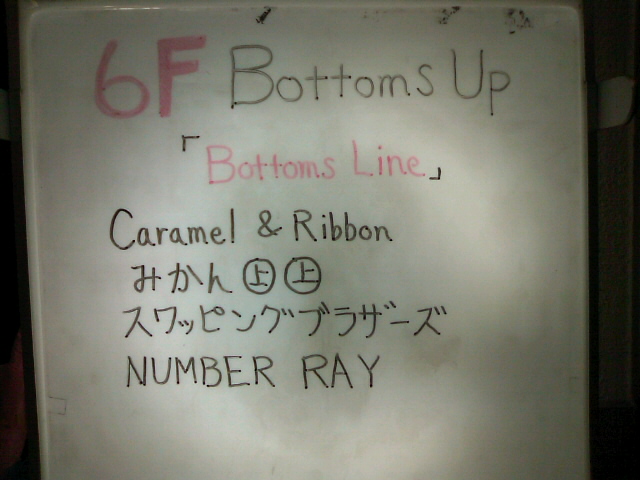 6F Bottoms Up
「Bottoms Line」
Caramel & Ribbon
みかん㊤㊤
スワッピングブラザーズ
NUMBER RAY